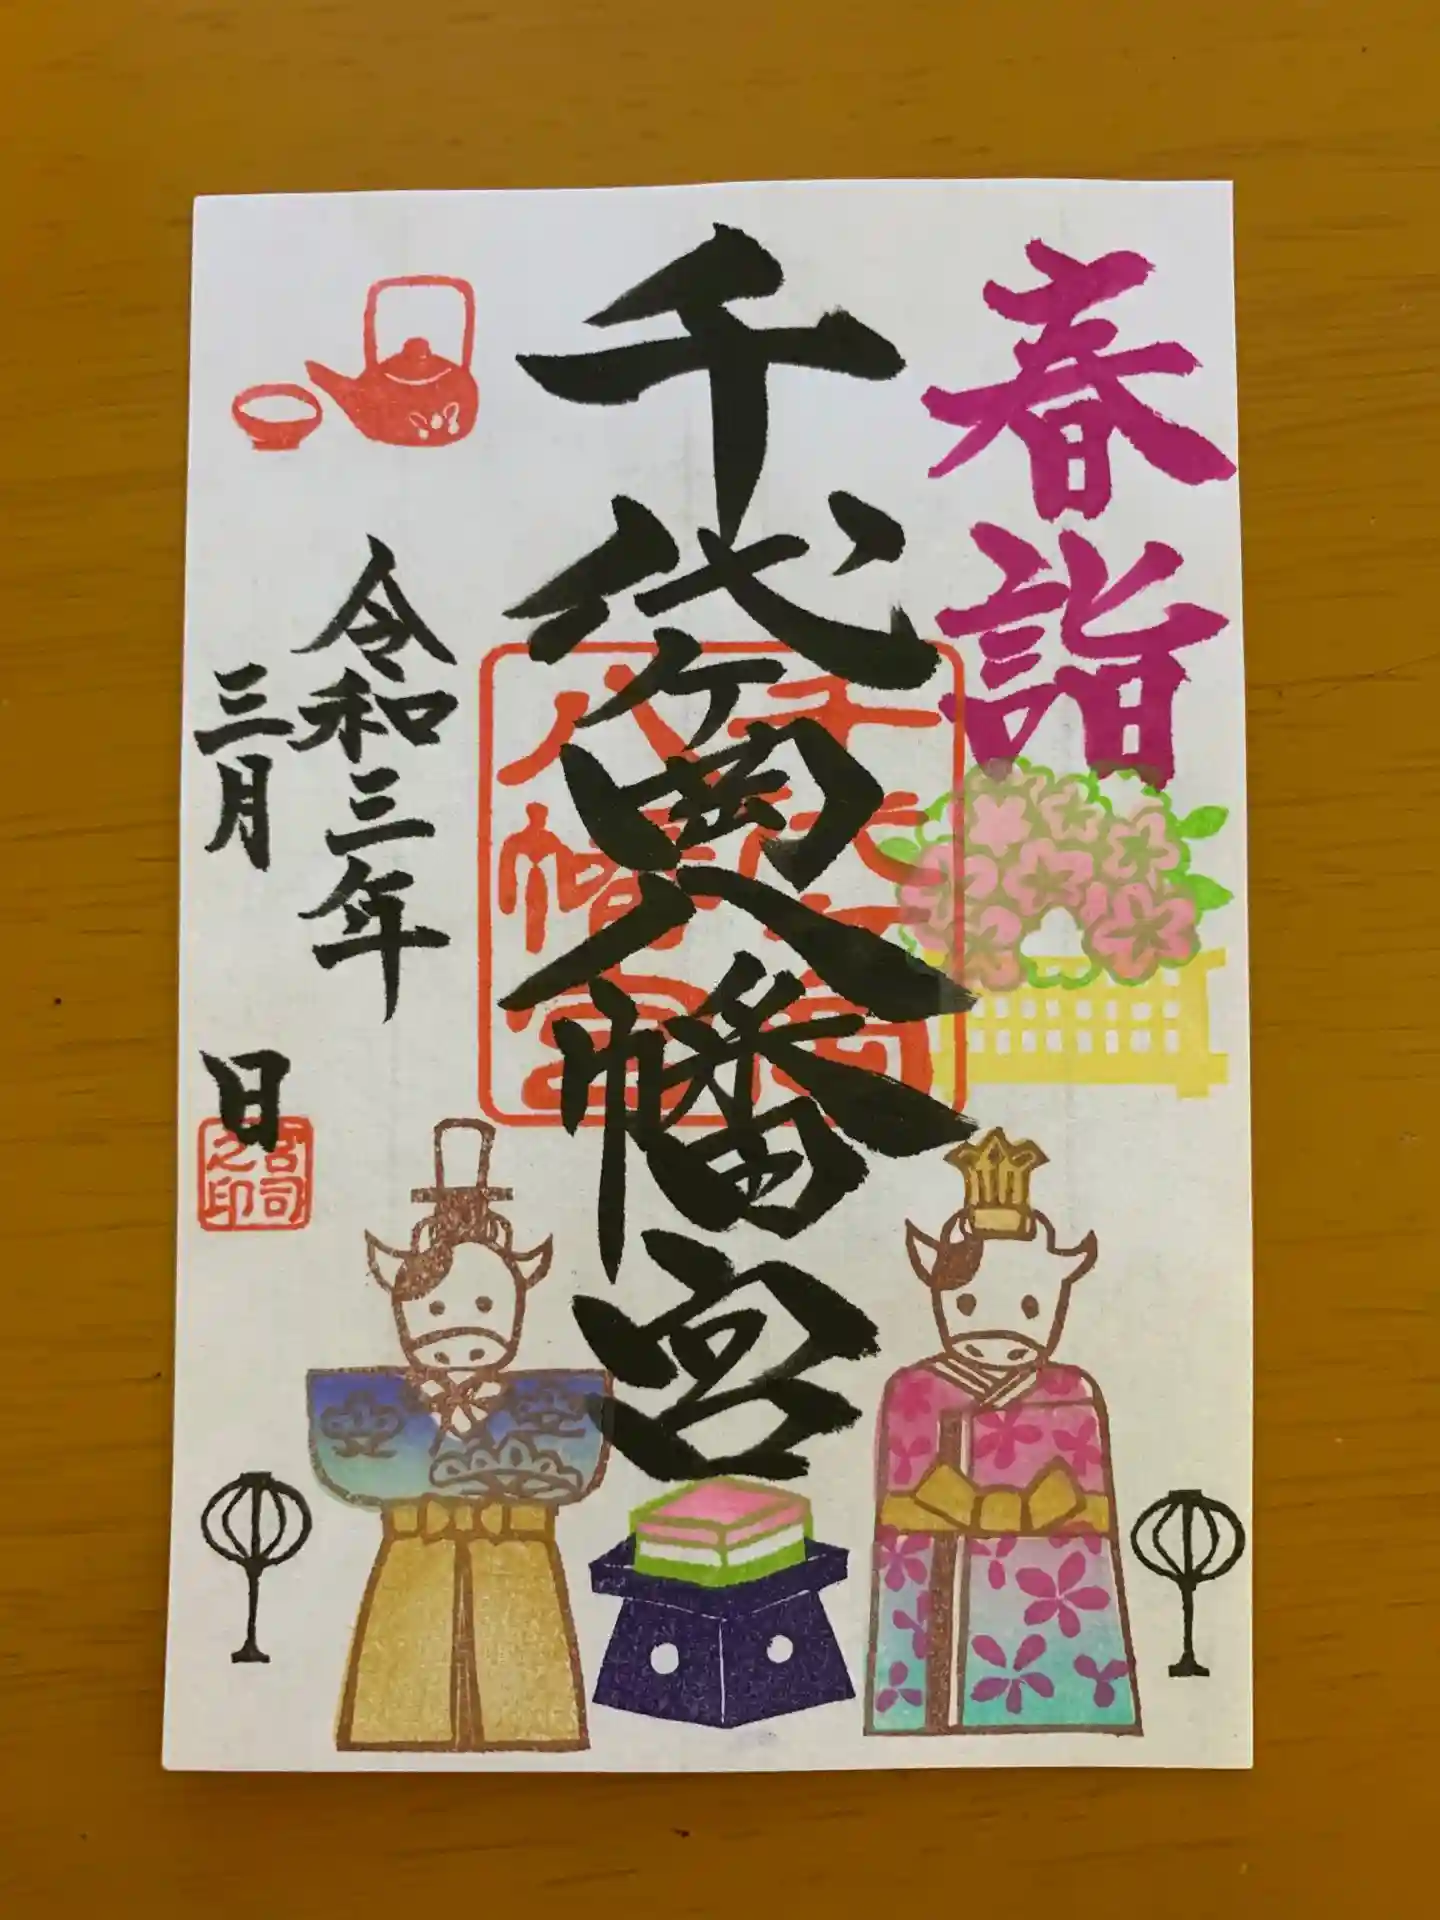 春詣
千代ヶ岡八幡宮
千代ヶ岡
八幡宮
令和三年
三月 日
宮司
之印